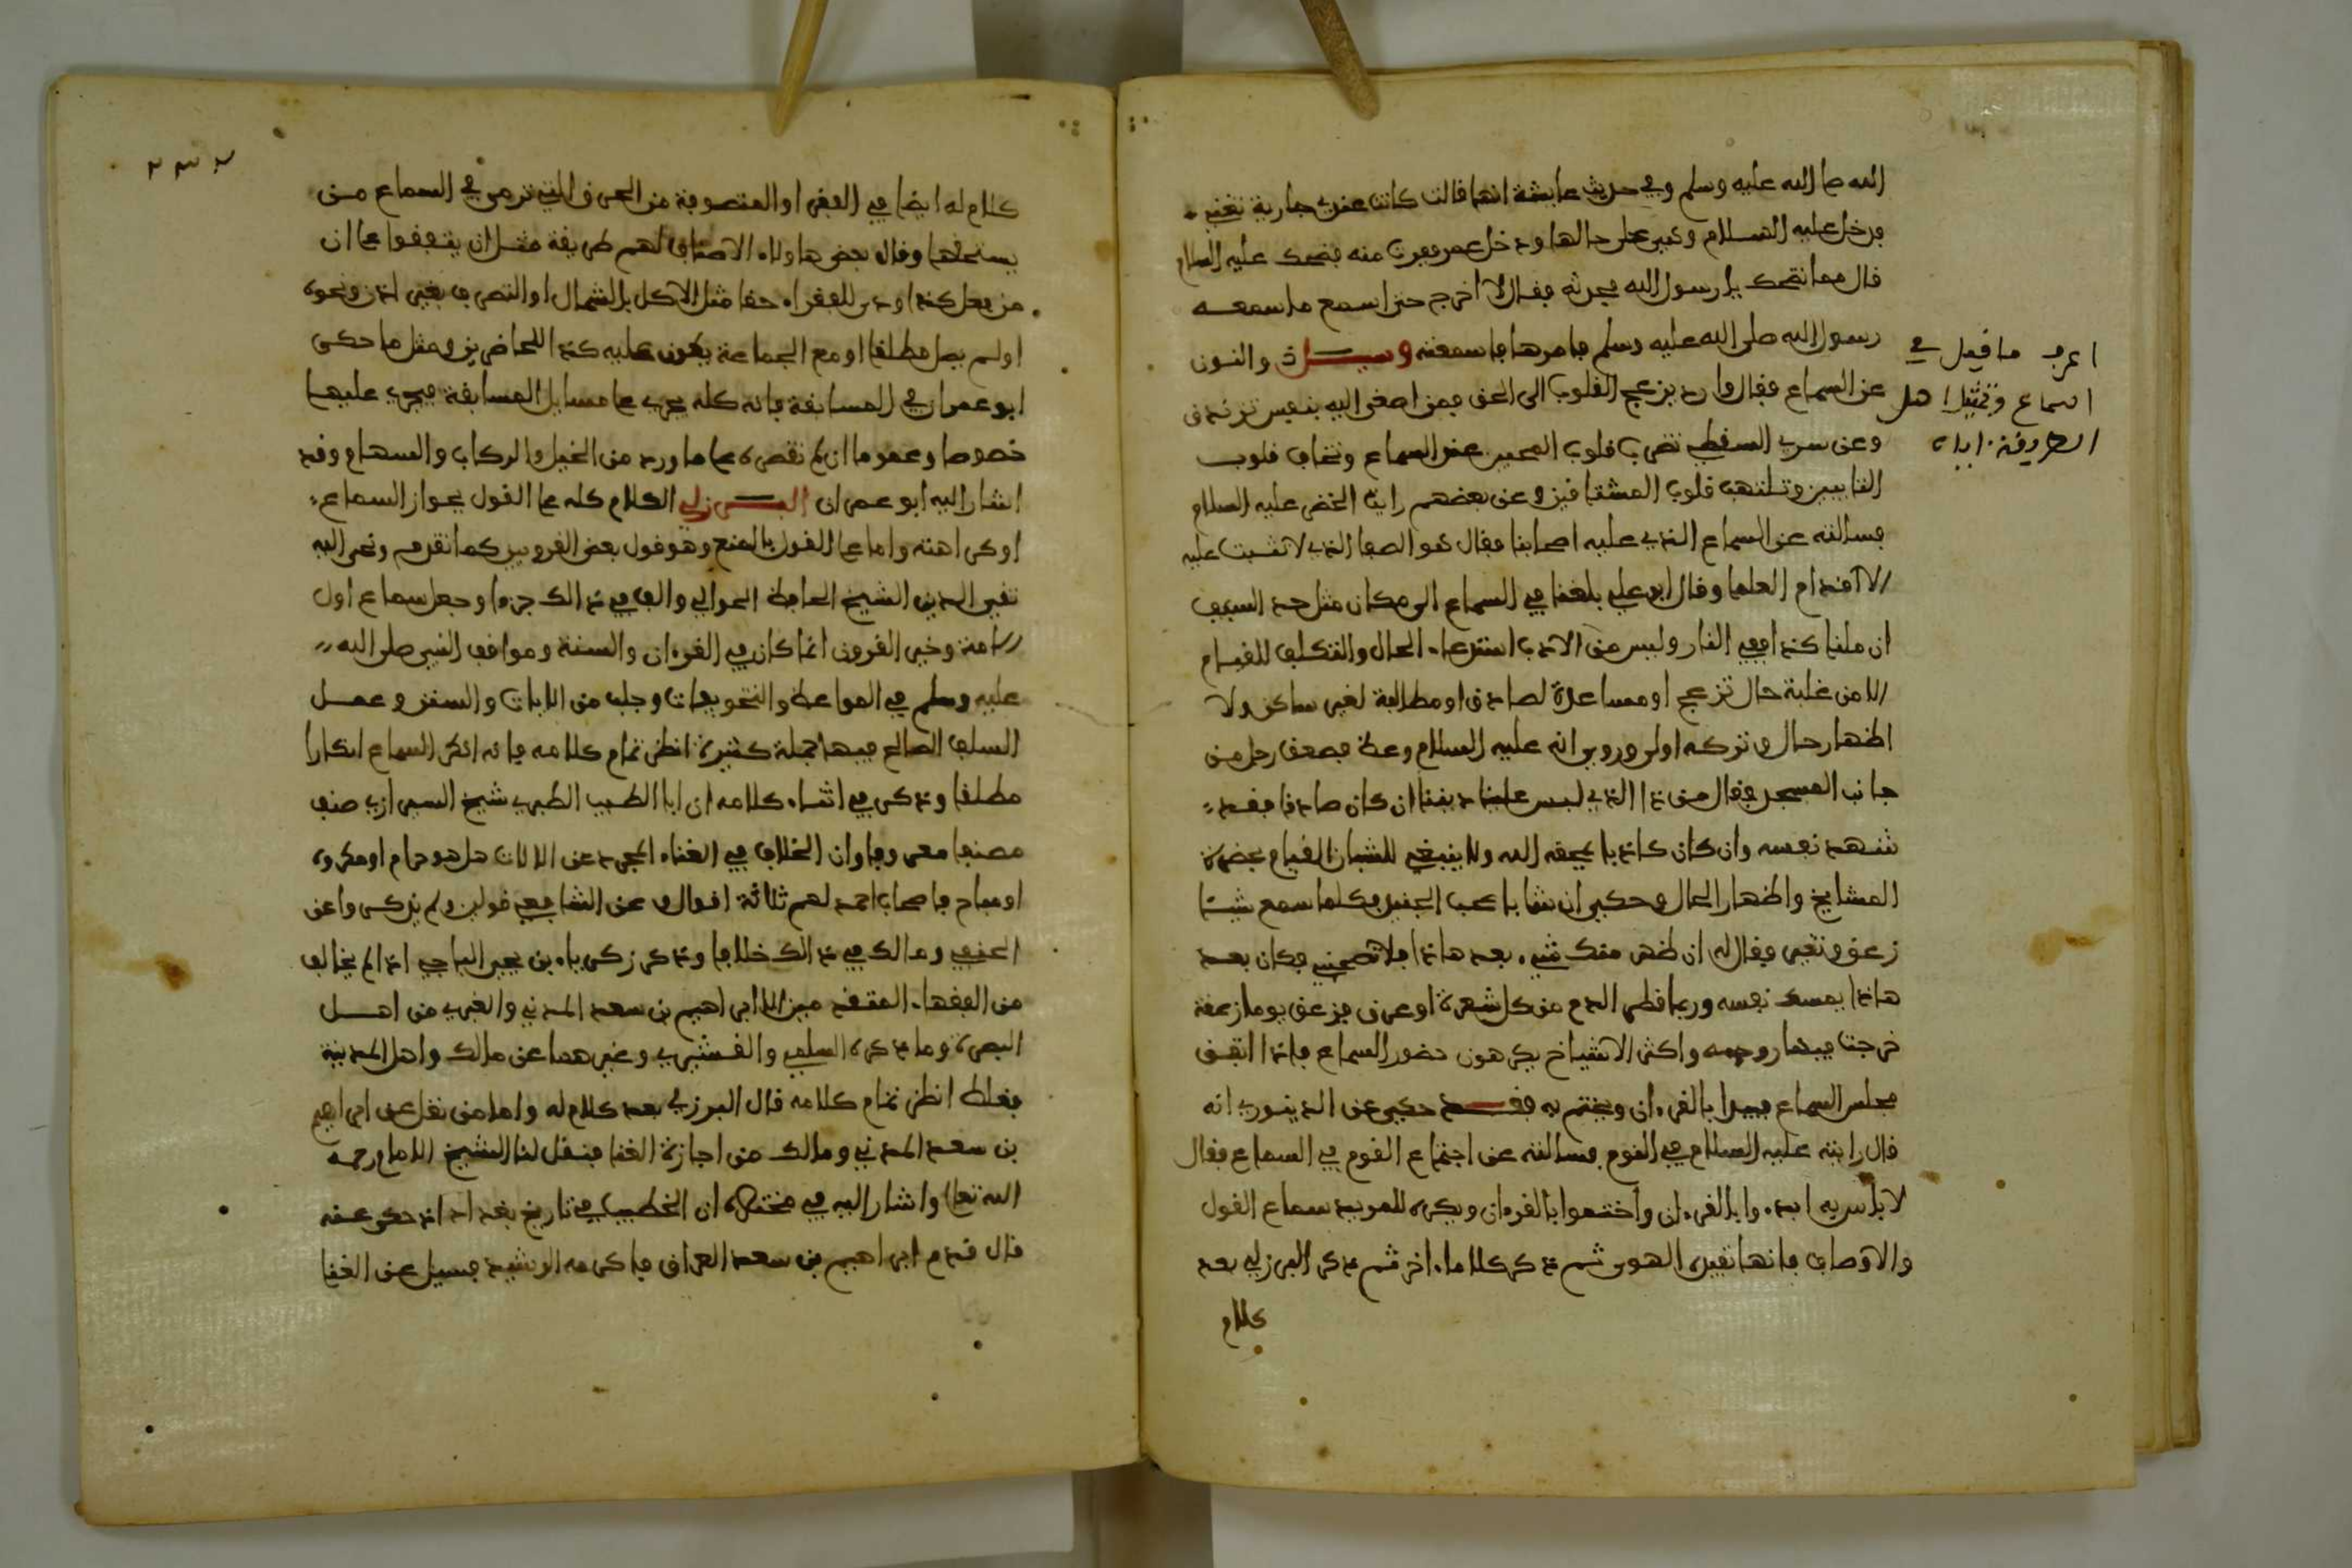 الله صلى الله عليه وسلم وفي حديث عايشة انها قالت كانت عندي جارية تغني
فدخل عليه السلام وهي على حالها ودخل عمر ففرت منه فضحك عليه السلام
قال مما تضحك يا رسول الله فحدثه فقال لا اخرج حتى اسمع ما سمعه
رسول الله صلى الله عليه وسلم فامرها فاسمعته وسيل ذو النون
عن السماع فقال وارد يزعج القلوب الى الحق فمن اصغى اليه بنفس تزندق
وعن سري السقطي تضرب قلوب المحبين عند السماع وتخاف قلوب
التايبين وتلتهب قلوب المشتاقين وعن بعضهم رايت الخضر عليه السلام
فسالته عن السماع الذي عليه اصحابنا فقال هو الصفا الذي لا تثبت عليه
الا اقدام العلما وقال ابو علي بلغنا في السماع الى مكان مثل حد السيف
ان ملنا كذا ففي النار وليس من الادب استدعاء الحال والتكلف للقيام
الا من غلبة حال تزعج او مساعدة لصادق او مطالبة لغير ساكن ولا
اظهار حال وتركه اولى وروي انه عليه السلام وعظ فصعق رجل من
جانب المسجد فقال من ذا الذي لبس علينا ديننا ان كان صادقا فقد
شهد نفسه وان كان كاذبا يمحقه الله ولا ينبغي للشبان القيام بحضرة
المشايخ واظهار الحال وحكي ان شابا صحب الجنيد فكلما سمع شيئا
زعق وتغير فقال له ان ظهر منك شيء بعد هاذا فلا تصحبني فكان بعد
هاذا يمسك نفسه وربما قطر الدم من كل شعرة او عرق فزعق يوما زعقة
خرجت فيها روحه واكثر الاشياخ يكرهون حضور السماع فاذا اتفق
مجلس السماع فيبدا بالقرءان ويختم به فقد حكي عن الدينوري انه
قال رايته عليه السلام في النوم فسالته عن اجتماع القوم في السماع فقال
لا باس به ابدءوا بالقرءان واختموا بالقرءان ويكره للمريد سماع القول
والاوصاف فانها تفيده الهوى ثم ذكر كلاما ءاخر ثم ذكر البرزلي بعد
كلام
اعرف ما قيل في
السماع وتمثيل اهل
الطريقة اياه
٢٣٢
كلام له ايضا في الفقراء والمتصوفة من الحرق التي ترمى في السماع من
يستحقها وقال بعض هاولاء الاصناف لهم طريقة مثل ان يتفقوا على ان
من فعل كذا ودى للفقراء حقا مثل الاكل بالشمال او التصرف بغير اذن ونحوه
او لم يصل مطلقا او مع الجماعة يكون عليه كذا للحاضرين ومثل ما حكى
ابو عمران في المسابقة فانه كله يجري على مسايل المسابقة فيجري عليها
خصوصا وعموما ان لم تقصره على ما ورد من الخيل والركاب والسهام وقد
اشار اليه ابو عمران البرزلي الكلام كله على القول بجواز السماع
او كراهته واما على القول بالمنع وهو قول بعض القرويين كما تقدم ونحى اليه
تقي الدين الشيخ الحافظ الحوالي والف في ذالك جزءا وجعل سماع اول
الامة وخير القرون انما كان في القرءان والسنة ومواقف النبي صلى الله
عليه وسلم في المواعظ والتخويفات وجلب من الايات والسنن وعمل
السلف الصالح فيها جملة كثيرة انظر تمام كلامه فانه انكر السماع انكارا
مطلقا وذكر في اثناء كلامه ان ابا الطيب الطبري شيخ الشيرازي صنف
مصنفا معروفا وان الخلاف في الغناء المجرد عن الالات هل هو حرام او مكروه
او مباح فاصحاب احمد لهم ثلاثة اقوال وعن الشافعي قولين ولم يذكروا عن
الحنفي ومالك في ذالك خلافا وذكر زكرياء بن يحيى الساجي انه لم يخالف
من الفقهاء المتقدمين الا ابراهيم بن سعد المدني والعنبري من اهل
البصرة وما ذكره السلمي والقشيري وغيرهما عن مالك واهل المدينة
فغلط انظر تمام كلامه قال البرزلي بعد كلام له واما من نقل عن ابراهيم
بن سعد المدني ومالك من اجازة الغنا فنقل لنا الشيخ الامام رحمه
الله تعالى واشار اليه في مختصره ان الخطيب في تاريخ بغداد انه حكى عنه
قال قدم ابراهيم بن سعد العراق فاكرمه الرشيد فسيل عن الغنا